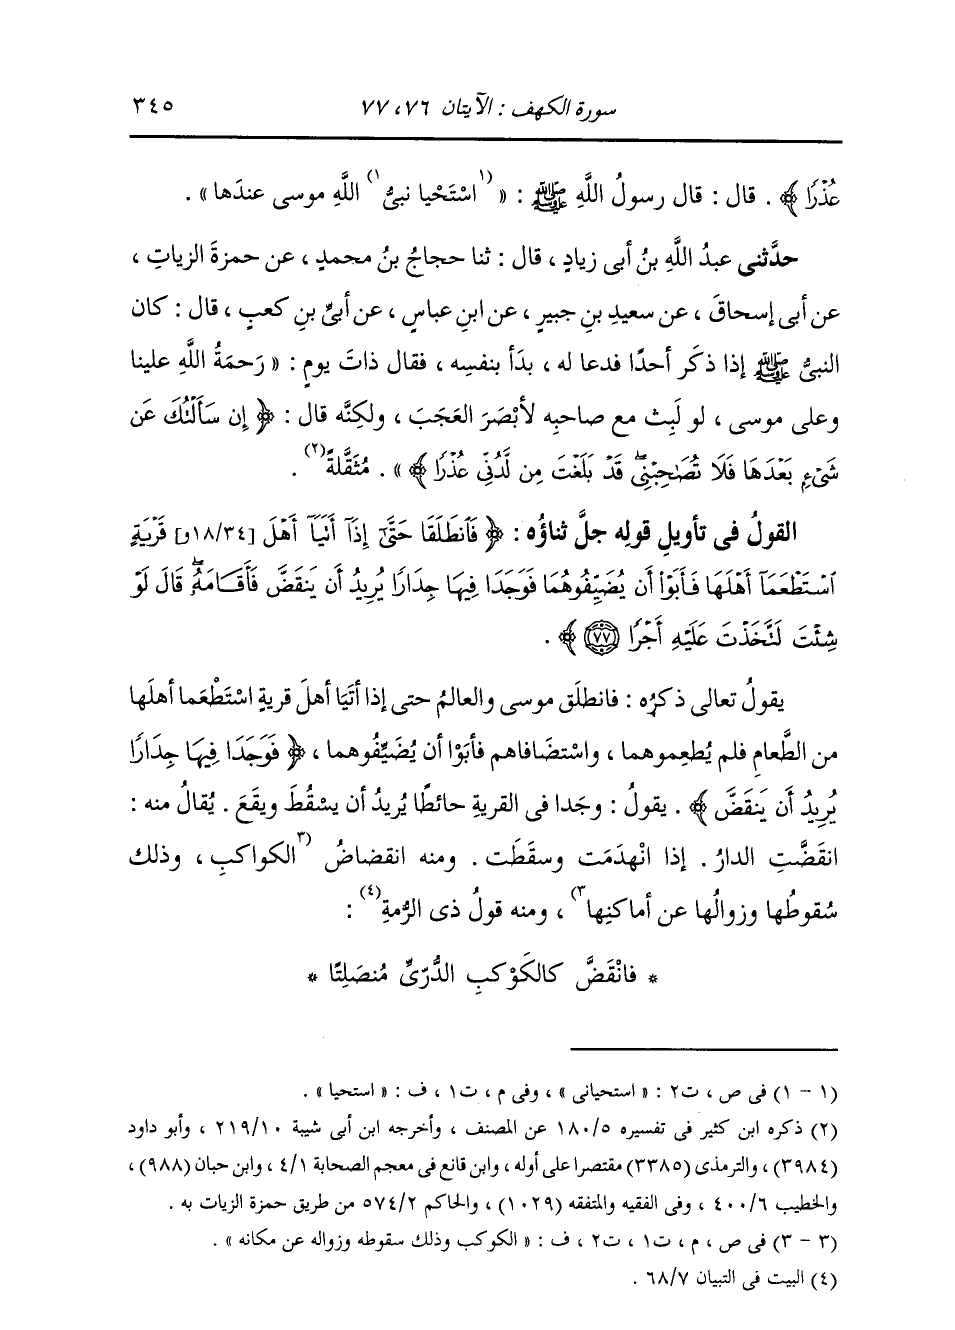 سورة الكهف : الآيتان ٧٦، ٧٧ ٣٤٥
عُذْرًا ﴾ . قال : قال رسولُ اللَّهِ ﷺ : « ⁽¹⁾اسْتَحْيا نبىُّ⁽¹⁾ اللَّهِ موسى عندَها » .
حدَّثنى عبدُ اللَّهِ بنُ أبى زيادٍ ، قال : ثنا حجاجُ بنُ محمدٍ ، عن حمزةَ الزياتِ ،
عن أبى إسحاقَ ، عن سعيدِ بنِ جبيرٍ ، عن ابنِ عباسٍ ، عن أبىِّ بنِ كعبٍ ، قال : كان
النبىُّ ﷺ إذا ذكَر أحدًا فدعا له ، بدَأ بنفسِه ، فقال ذاتَ يومٍ : « رَحمَةُ اللَّهِ علينا
وعلى موسى ، لو لَبِث مع صاحبِه لأبْصَرَ العَجَبَ ، ولكِنَّه قال : ﴿ إِن سَأَلْتُكَ عَن
شَىْءٍۭ بَعْدَهَا فَلَا تُصَٰحِبْنِىۖ قَدْ بَلَغْتَ مِن لَّدُنِّى عُذْرًا ﴾ » . مُثَقَّلةً⁽٢⁾ .
القولُ فى تأويلِ قولِه جلَّ ثناؤُه : ﴿ فَٱنطَلَقَا حَتَّىٰٓ إِذَآ أَتَيَآ أَهْلَ [١٨/٣٤و] قَرْيَةٍ
ٱسْتَطْعَمَآ أَهْلَهَا فَأَبَوْا۟ أَن يُضَيِّفُوهُمَا فَوَجَدَا فِيهَا جِدَارًا يُرِيدُ أَن يَنقَضَّ فَأَقَامَهُۥۖ قَالَ لَوْ
شِئْتَ لَتَّخَذْتَ عَلَيْهِ أَجْرًا ٧٧ ﴾ .
يقولُ تعالى ذكرُه : فانطلَق موسى والعالمُ حتى إذا أتَيَا أهلَ قريةٍ اسْتَطْعَما أهلَها
من الطَّعامِ فلم يُطعِموهما ، واسْتضافاهم فأبَوْا أن يُضَيِّفُوهما ، ﴿ فَوَجَدَا فِيهَا جِدَارًا
يُرِيدُ أَن يَنقَضَّ ﴾ . يقولُ : وجَدا فى القريةِ حائطًا يُريدُ أن يسْقُطَ ويقَعَ . يُقالُ منه :
انقَضَّتِ الدارُ . إذا انْهدَمَت وسقَطَت . ومنه انقضاضُ ⁽٣⁾الكواكبِ ، وذلك
سُقوطُها وزوالُها عن أماكنِها⁽٣⁾ ، ومنه قولُ ذى الرُّمةِ⁽٤⁾ :
* فانْقَضَّ كالكَوْكبِ الدُّرّىِّ مُنصَلِتًا *
(١ - ١) فى ص ، ت٢ : « استحيانى » ، وفى م ، ت١ ، ف : « استحيا » .
(٢) ذكره ابن كثير فى تفسيره ١٨٠/٥ عن المصنف ، وأخرجه ابن أبى شيبة ٢١٩/١٠ ، وأبو داود
(٣٩٨٤) ، والترمذى (٣٣٨٥) مقتصرا على أوله ، وابن قانع فى معجم الصحابة ٤/١ ، وابن حبان (٩٨٨) ،
والخطيب ٤٠٠/٦ ، وفى الفقيه والمتفقه (١٠٢٩) ، والحاكم ٥٧٤/٢ من طريق حمزة الزيات به .
(٣ - ٣) فى ص ، م ، ت١ ، ت٢ ، ف : « الكوكب وذلك سقوطه وزواله عن مكانه » .
(٤) البيت فى التبيان ٦٨/٧ .